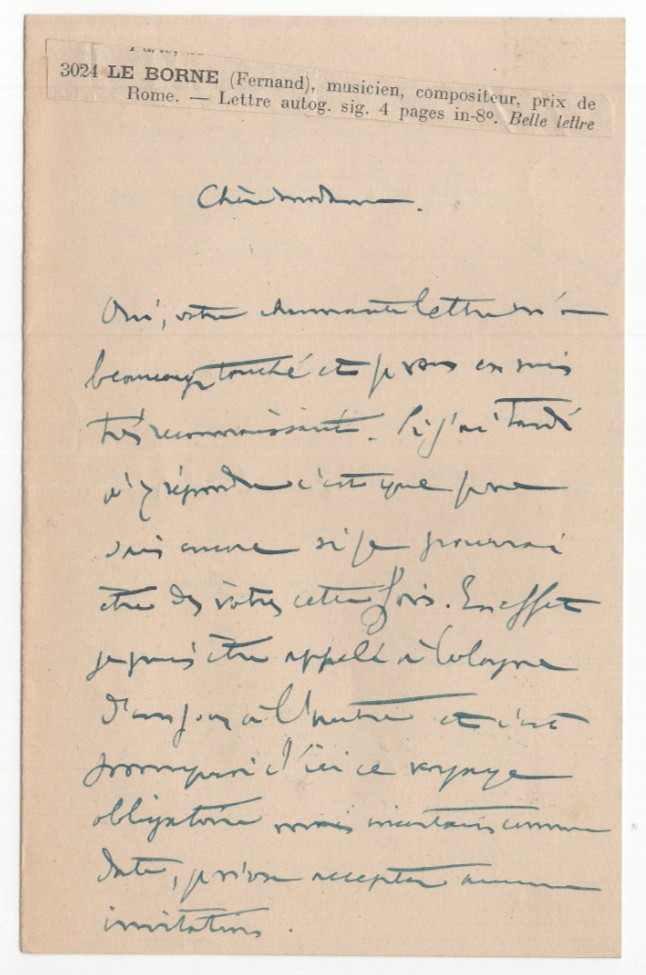 3024 LE BORNE (Fernand), musicien, compositeur, prix de
Rome. — Lettre autog. sig. 4 pages in-8o. Belle lettre
Chère madame.
Oui, votre charmante lettre m'a
beaucoup touché et je vous en suis
très reconnaissant. Si j'ai tardé
à y répondre c'est que je ne
sais encore si je pourrai
être des vôtres cette fois. En effet
je puis être appelé à Cologne
d'un jour à l'autre et c'est
pourquoi d'ici ce voyage
obligatoire mais incertain comme
date, je n'ose accepter aucune
invitation.